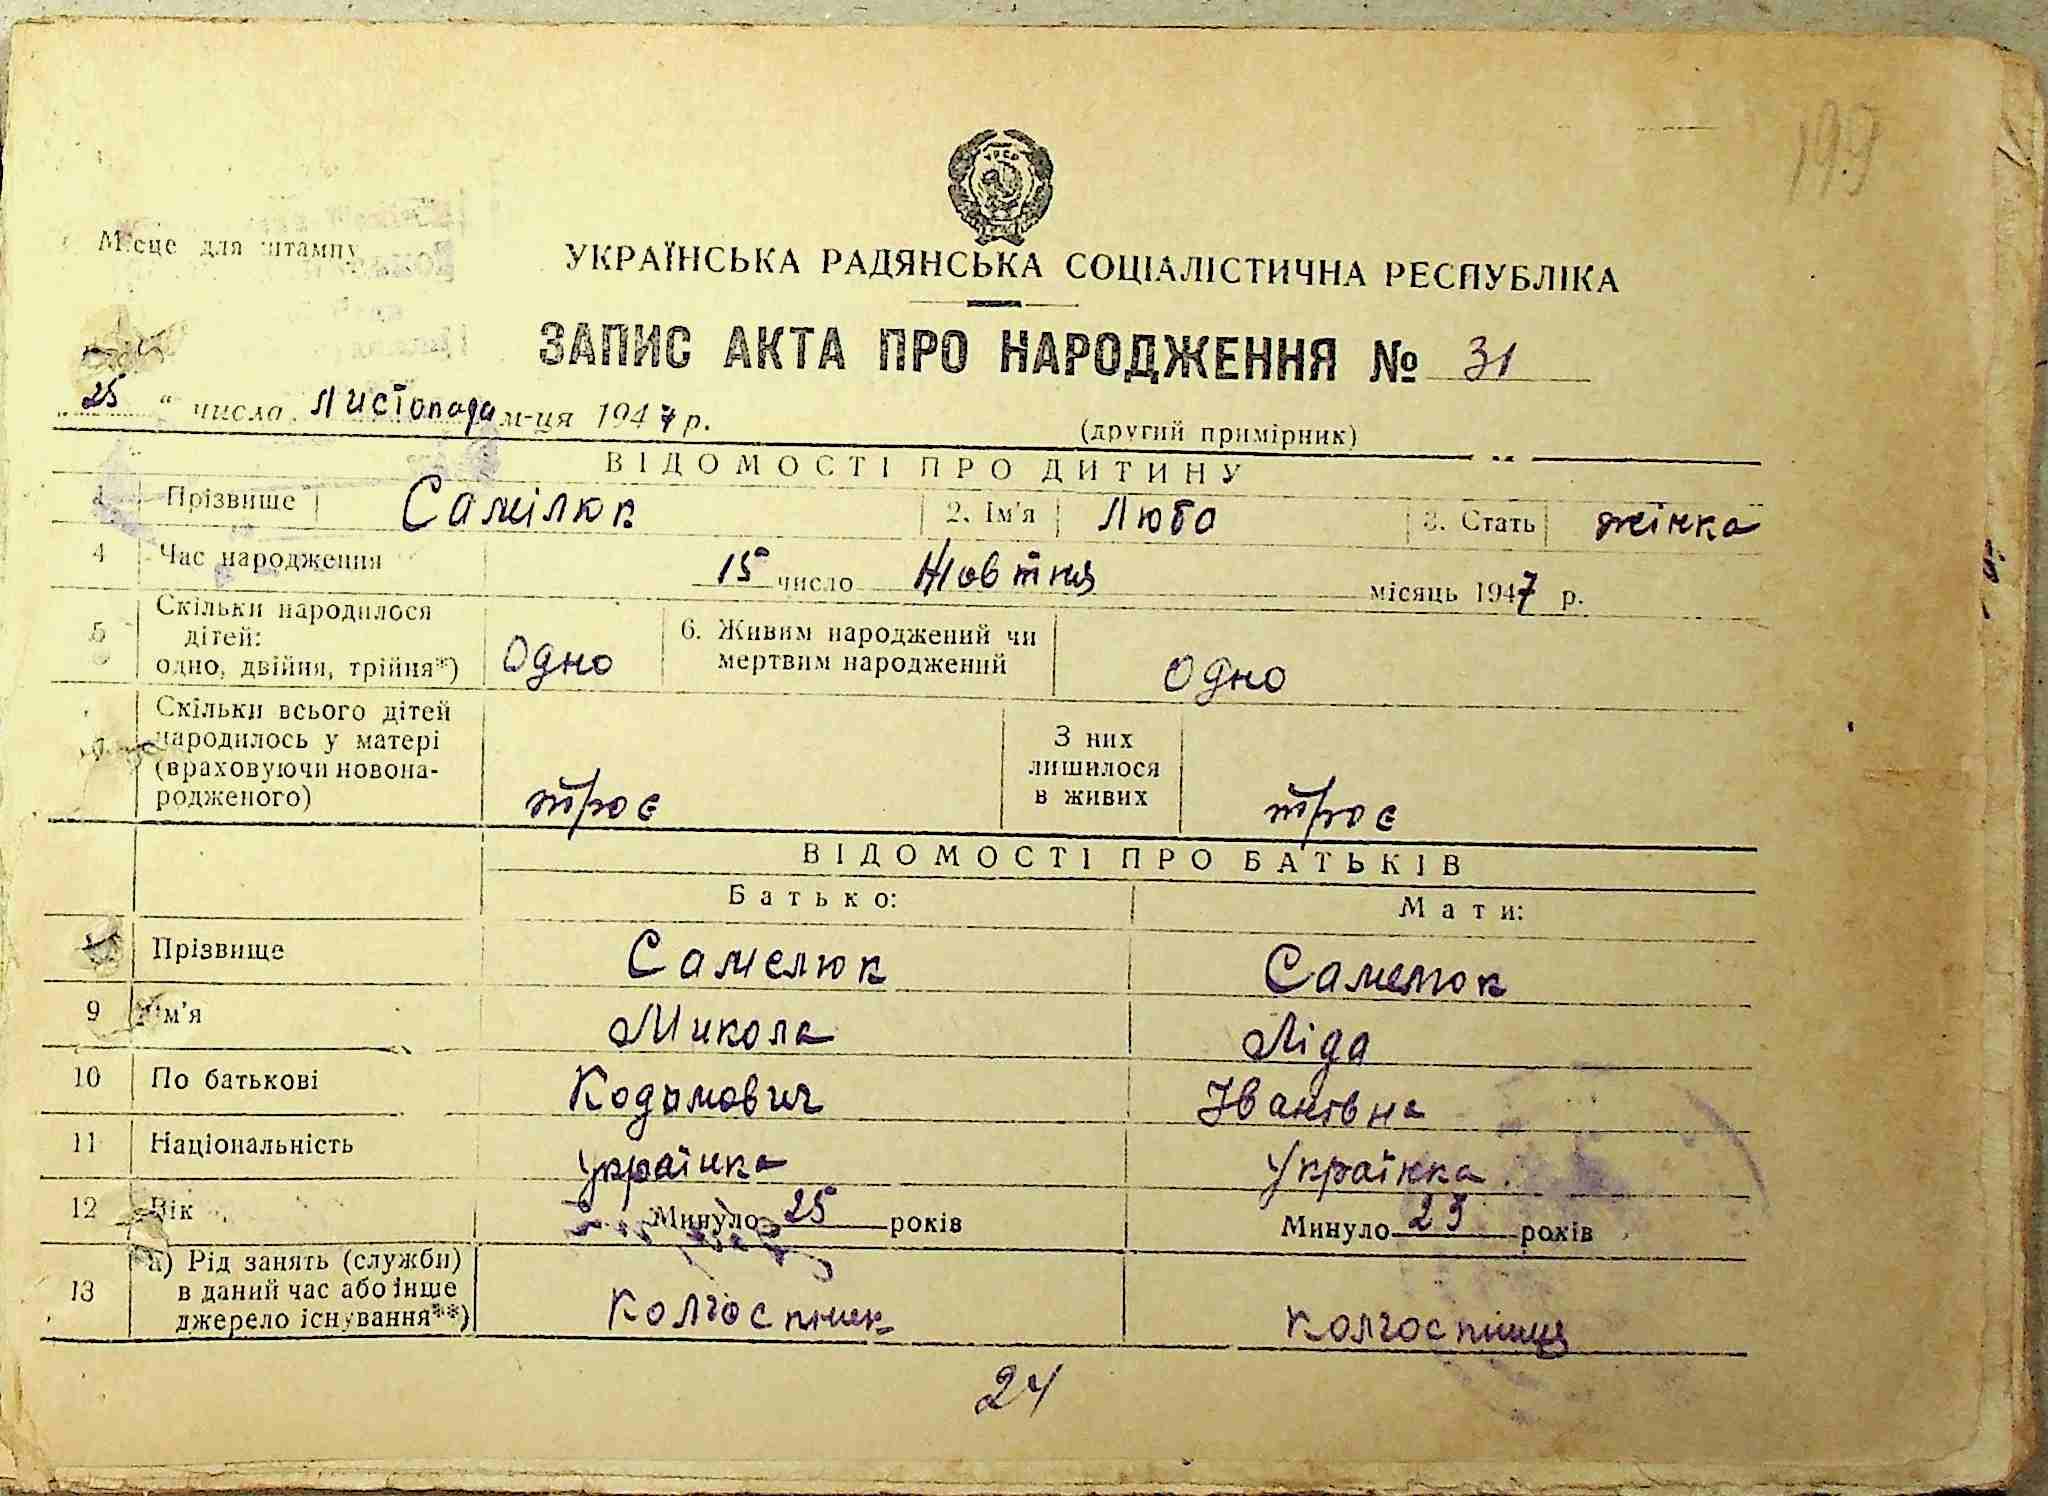 199
УРСР
Місце для штампу
УКРАЇНСЬКА РАДЯНСЬКА СОЦІАЛІСТИЧНА РЕСПУБЛІКА
ЗАПИС АКТА ПРО НАРОДЖЕННЯ № 31
„25“ числа Листопада м-ця 1947 р.
(другий примірник)
ВІДОМОСТІ ПРО ДИТИНУ
1 Прізвище Самілюк 2. Ім'я Люба 3. Стать жінка
4 Час народження 15 число Жовтня місяць 1947 р.
5 Скільки народилося дітей: одно, двійня, трійня*) Одно 6. Живим народжений чи мертвим народжений Одно
Скільки всього дітей народилось у матері (враховуючи новонародженого) троє З них лишилося в живих троє
ВІДОМОСТІ ПРО БАТЬКІВ
Батько: Мати:
Прізвище Самелюк Самелюк
9 Ім'я Микола Ліда
10 По батькові Іванівна
11 Національність Українка Українка
12 Вік Минуло 25 років Минуло 23 років
13 а) Рід занять (служби) в даний час або інше джерело існування**) Колгоспник колгоспниця
24